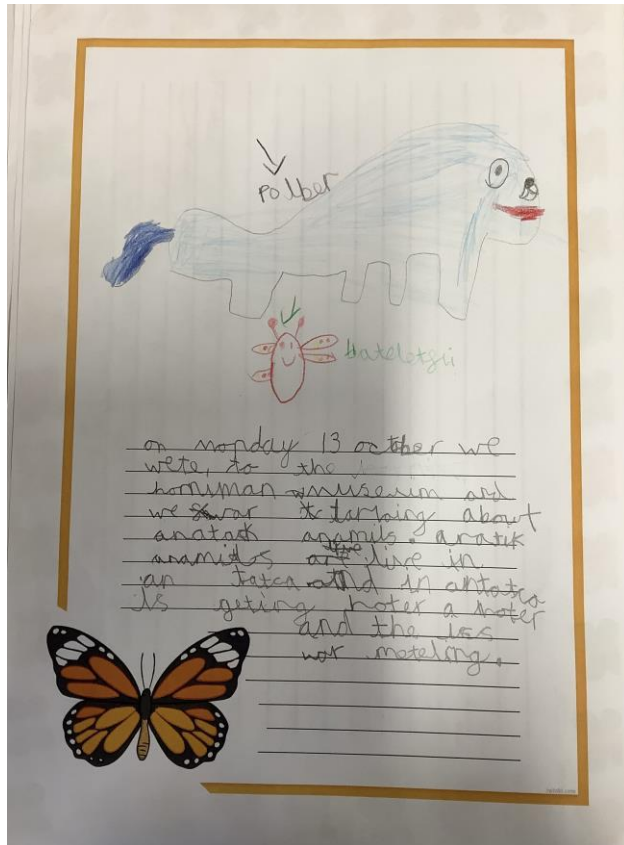 polber
bateletgii
on monday 13 october we
wete, to the
horniman museum and
we war tarlaing about
anatask anamils. anatik
anamidos live in
an tatca and in antatca
is geting hoter a hoter
and the iss
wor moteling.